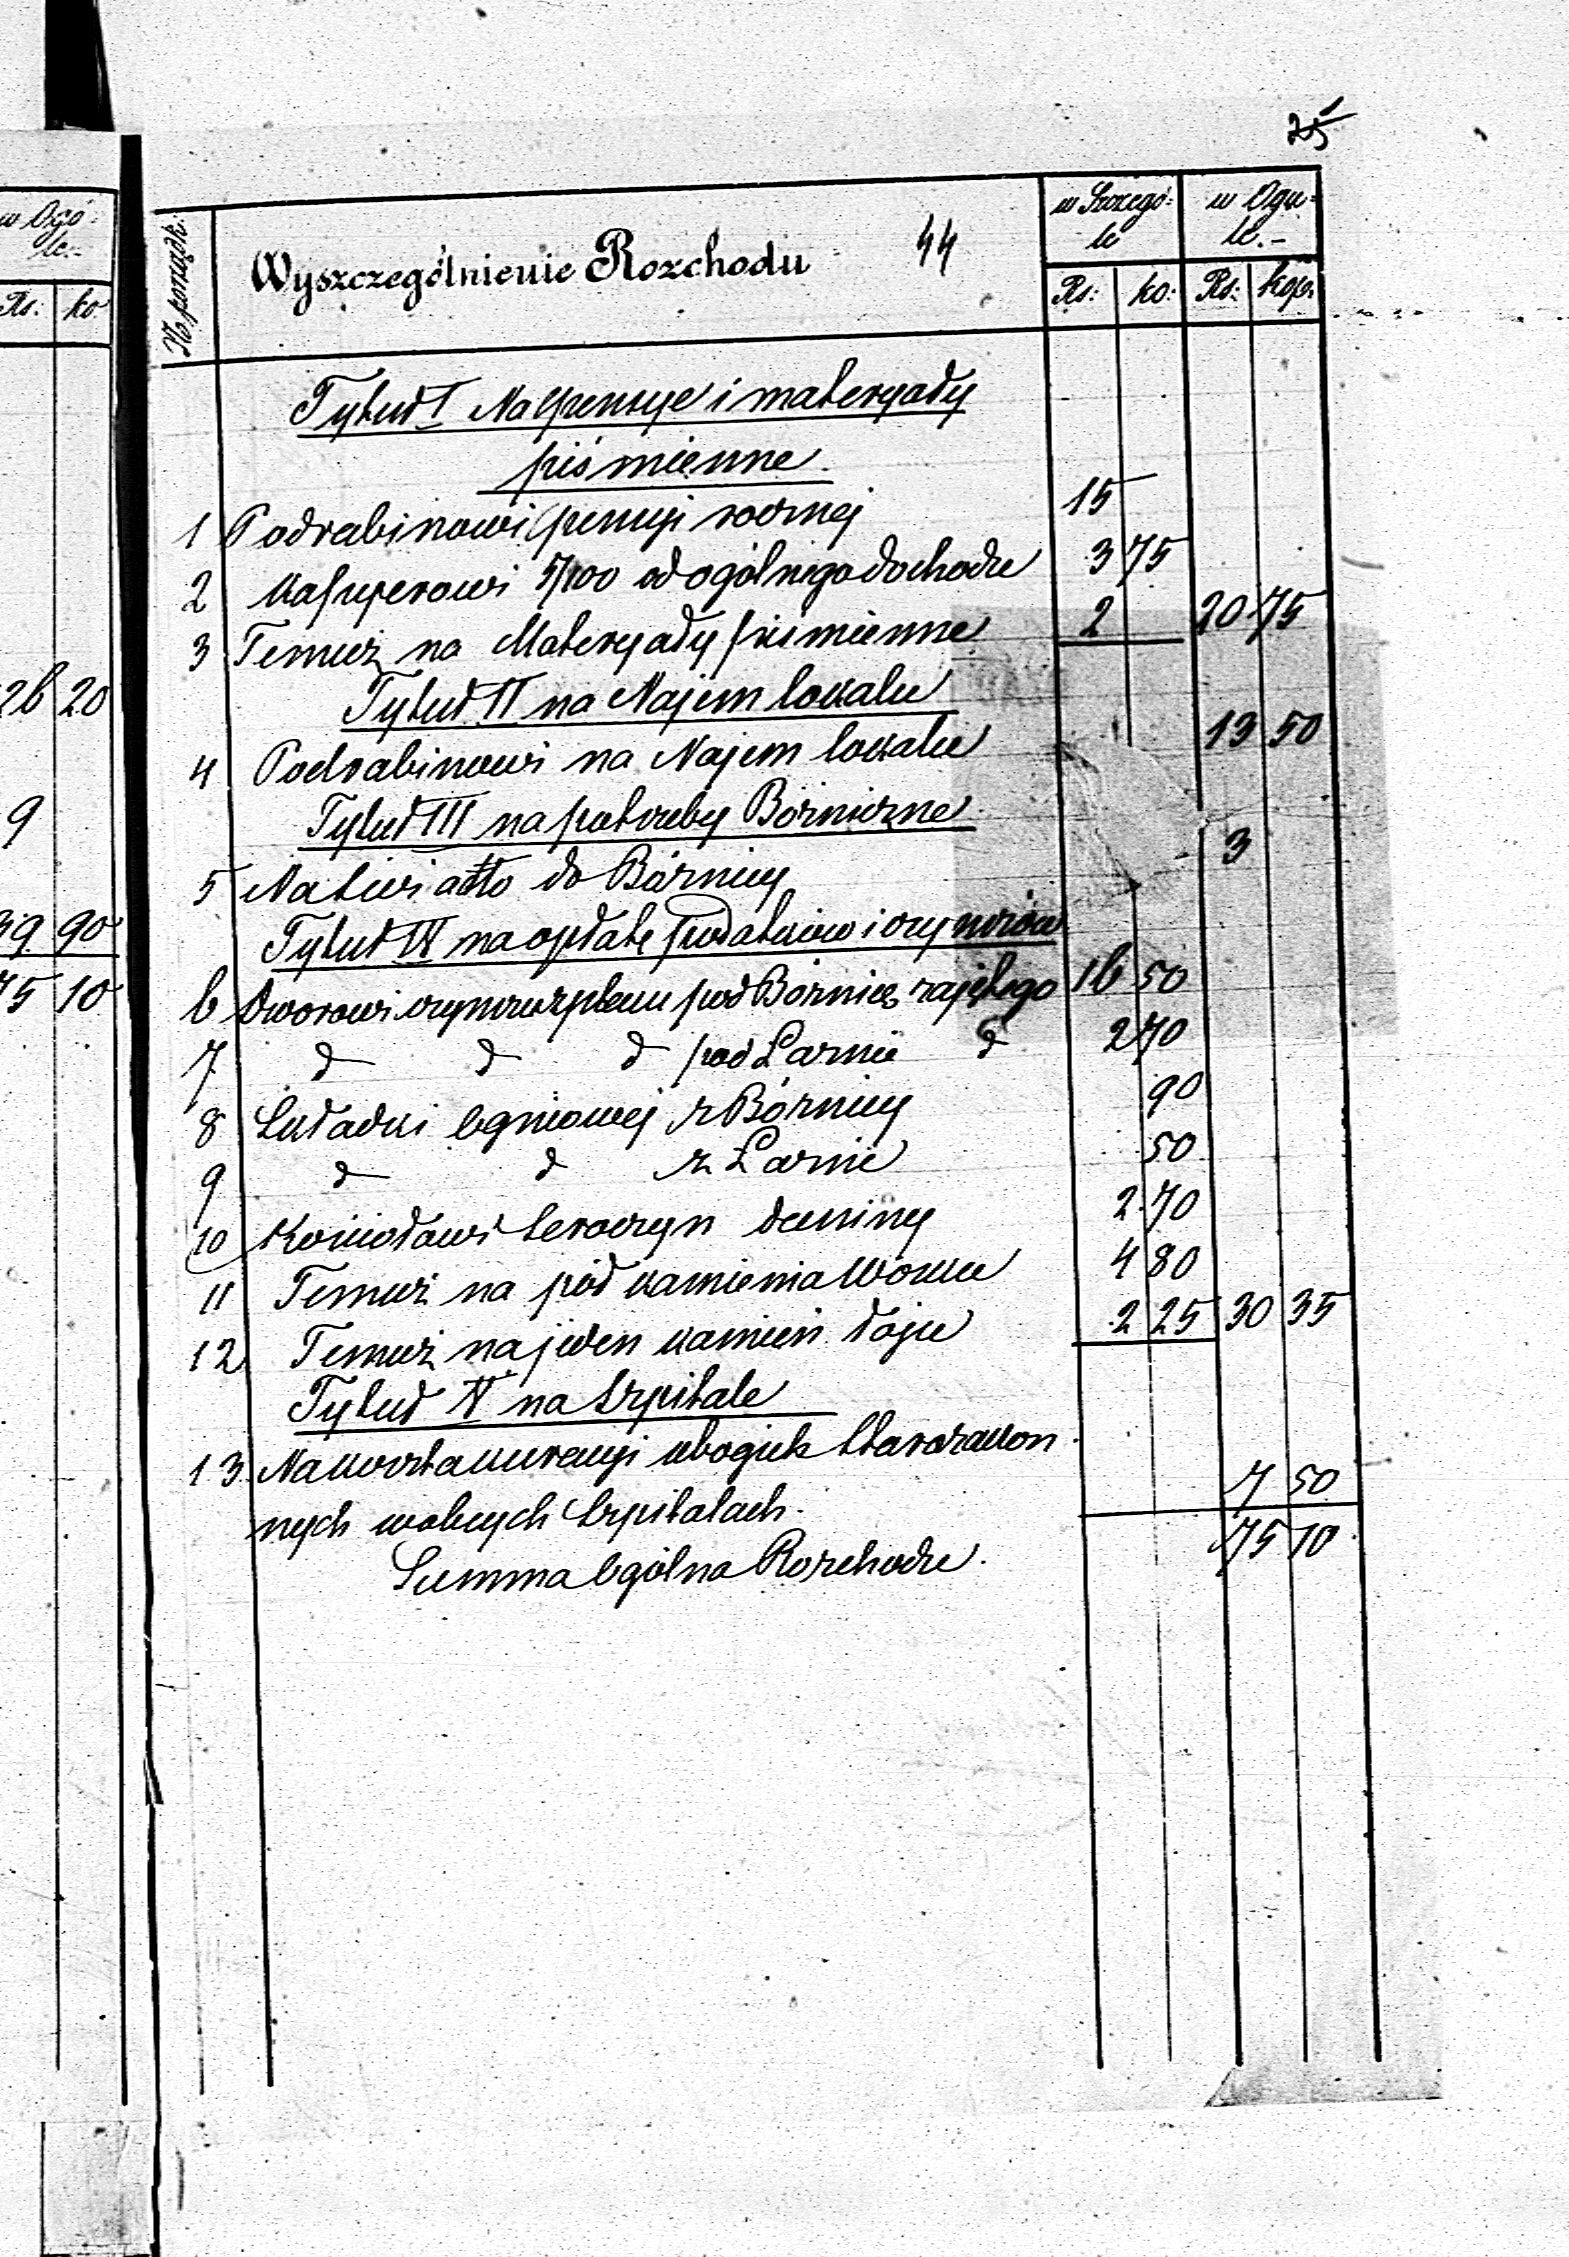 25
w Ogó-
le.-
Rs: ko
26 20
9
39 90
75 10
No porządk:
Wyszczególnienie Rozchodu 44
w Szczegó-
le
w Ogu-
le.-
Rs: ko: Rs: kop:
Tytuł I Na pensye i materyały
piśmienne.
1 Podrabinowi pensyi rocznej 15
2 Kassyerowi 5/100 od ogólnego dochodu 3 75
3 Temuż na Materyały piśmienne 2 20 75
Tytuł II na Najem lokalu
4 Podrabinowi na Najem lokalu 13 50
Tytuł III na potrzeby Bóżniczne
5 Na światło do Bóżnicy 3
Tytuł IV na opłatę podatków i czynszów
6 Dworowi czynszu z placu pod Bóżnicę zajętego 16 50
7 d d d pod Łaźnie d 2 70
8 Składki Ogniowej z Bóżnicy 90
9 d d z Łaźnie 50
10 Kościołowi daniny 2 70
11 Temuż na pół kamienia Wosku 4 80
12 Temuż na jeden kamień łoju 2 25 30 35
Tytuł V na Szpitale
13 Na koszta kuracyi ubogich Starozakon
nych w obcych Szpitalach. 7 50
Summa Ogólna Rozchodu. 75 10